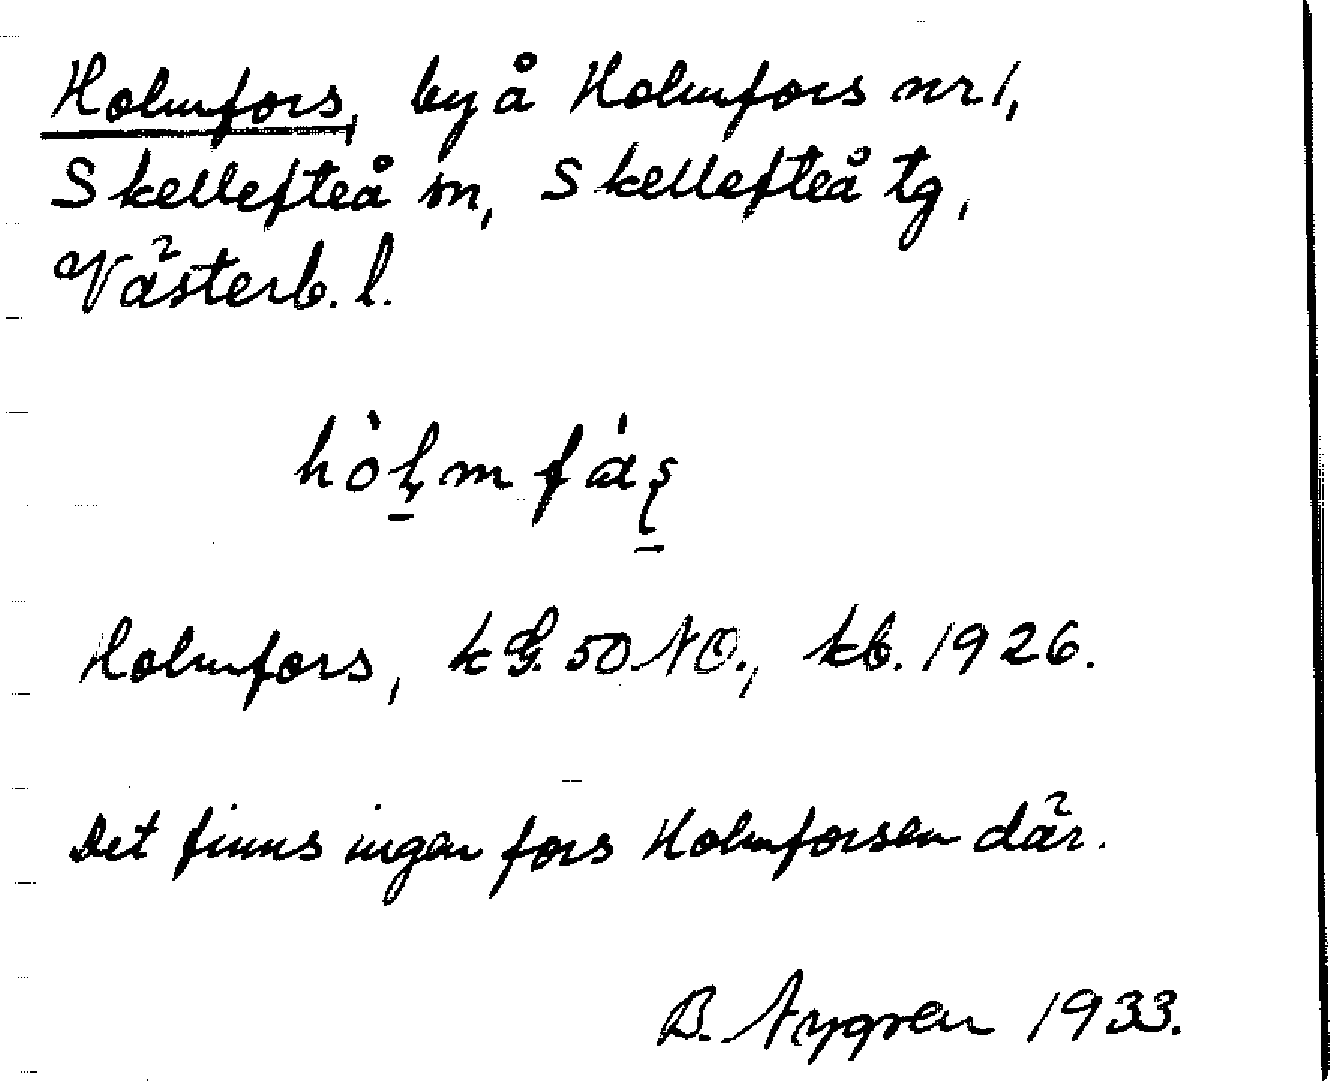 Holmfors, by å Holmfors nr 1,
Skellefteå sn, Skellefteå tg,
Västerb. l.
hòḷmfáʂ
Holmfors, k G. 50 NO., kb. 1926.
Det finns ingen fors Holmforsen där.
B. Nygren 1933.